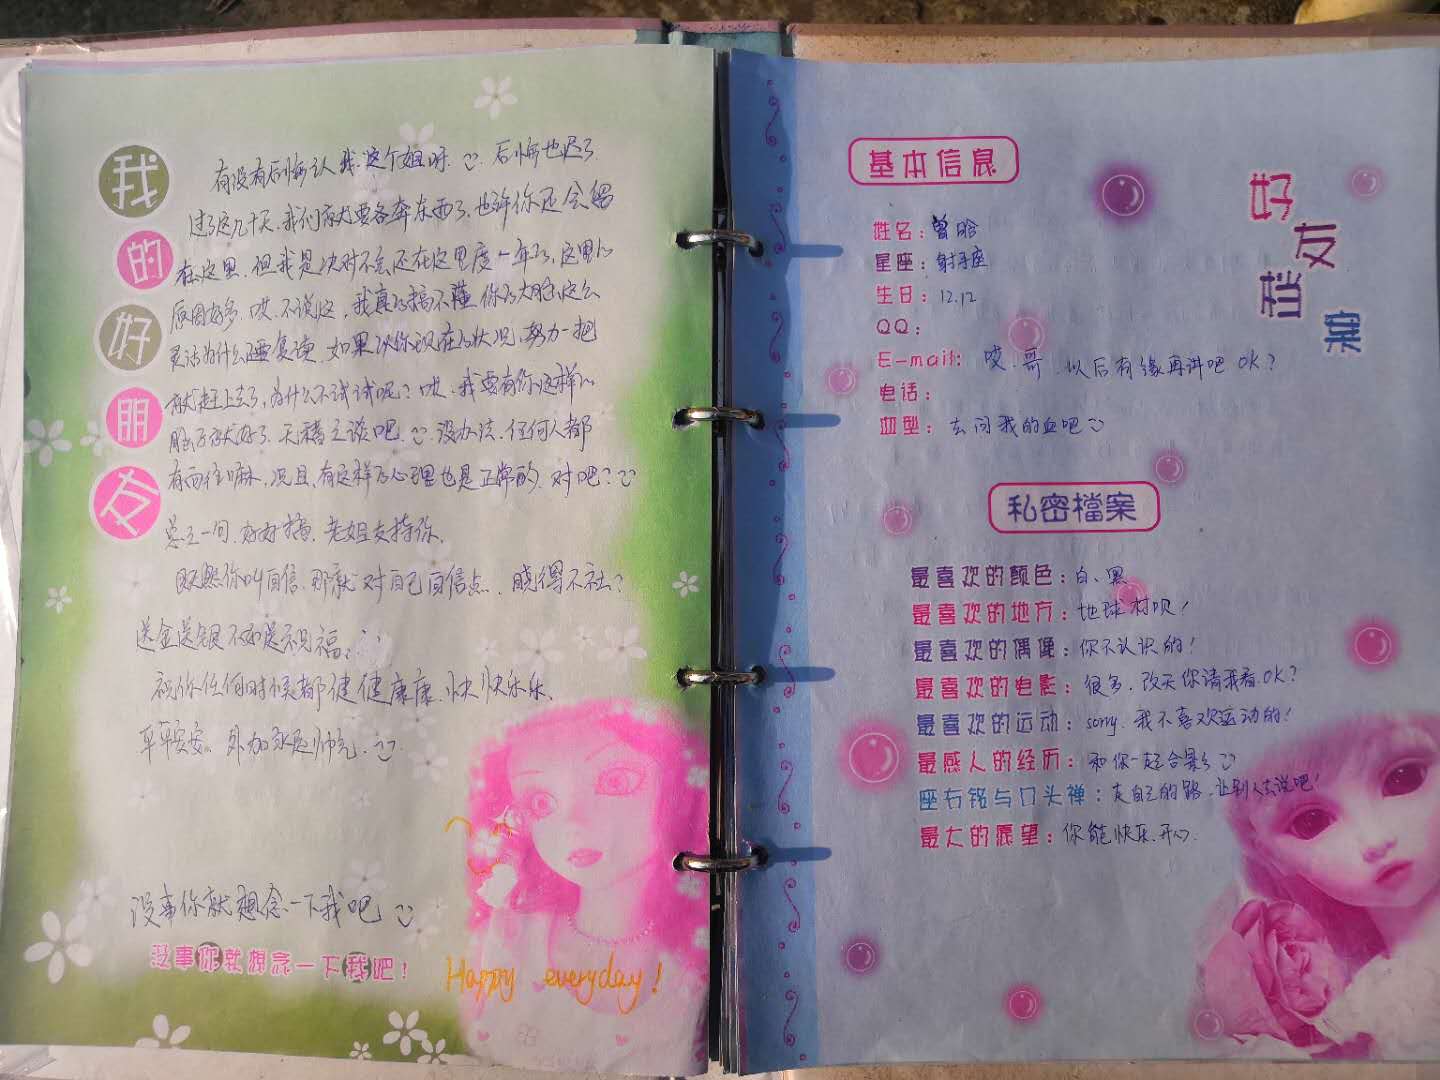 我的好朋友
有没有后悔认我这个姐呀.后悔也迟了
过了这几十天.我们就要各奔东西了,也许你还会留
在这里.但我是决对不会还在这里度一年了,这里的
原因好多.哎.不说这,我真的搞不懂你的大脑这么
灵活为什么还要复读.如果以你现在的状况,努力一把
就赶上去了,为什么不试试呢?哎.我要有你这样的
脑子就好了.天稿之谈吧.没办法.任何人都
有面住嘛.况且.有这样的心理也是正常的.对吧?
总之一句.好好搞.老姐支持你.
既然你叫自信.那就对自己自信点.晓得不社?
送金送银不如送祝福:
祝你任何时候都健健康康.快快乐乐.
平平安安.外加永远帅气.
没事你就想念一下我吧
没事你就想念一下我吧!
Happy everyday!
好友档案
基本信息
姓名:曾晗
星座:射手座
生日:12.12
QQ:
E-mail: 哎.哥.以后有缘再讲吧OK?
电话:
血型:去问我的血吧
私密檔案
最喜欢的颜色:白、黑
最喜欢的地方:地球村呗!
最喜欢的偶像:你不认识的!
最喜欢的电影:很多.改天你请我看OK?
最喜欢的运动:sorry.我不喜欢运动的!
最感人的经历:和你一起合影
座右铭与口头禅:走自己的路.让别人去说吧!
最大的愿望:你能快乐.开心.